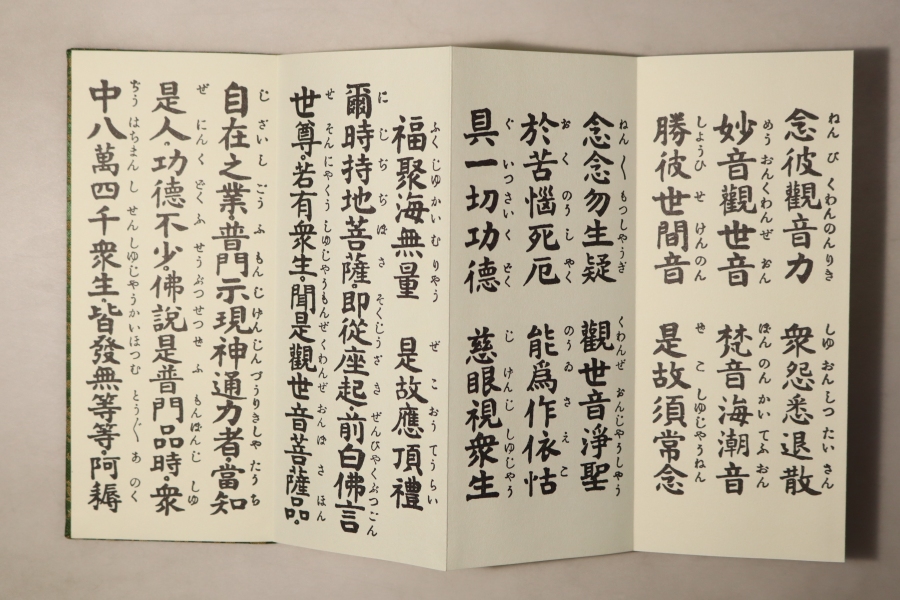 念彼觀音力 衆怨悉退散
妙音觀世音 梵音海潮音
勝彼世間音 是故須常念
念念勿生疑 觀世音淨聖
於苦惱死厄 能爲作依怙
具一切功德 慈眼視衆生
福聚海無量 是故應頂禮
爾時持地菩薩即從座起前白佛言
世尊若有衆生聞是觀世音菩薩品
自在之業普門示現神通力者當知
是人功德不少佛說是普門品時衆
中八萬四千衆生皆發無等等阿耨